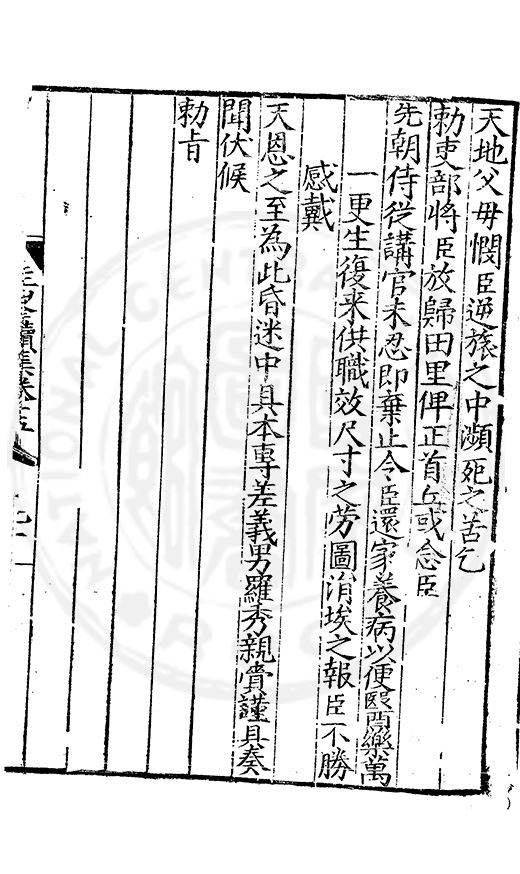 天地父母憫臣逆旅之中瀕死之苦乞
勅吏部將臣放歸田里俾正首丘或念臣
先朝侍從講官未忍即棄止令臣還家養病以便醫藥萬
一更生復来供職效尺寸之劳圖涓埃之報臣不勝
感戴
天恩之至為此昏迷中具本專差義男羅秀親賫謹具奏
聞伏候
勅旨
續集卷